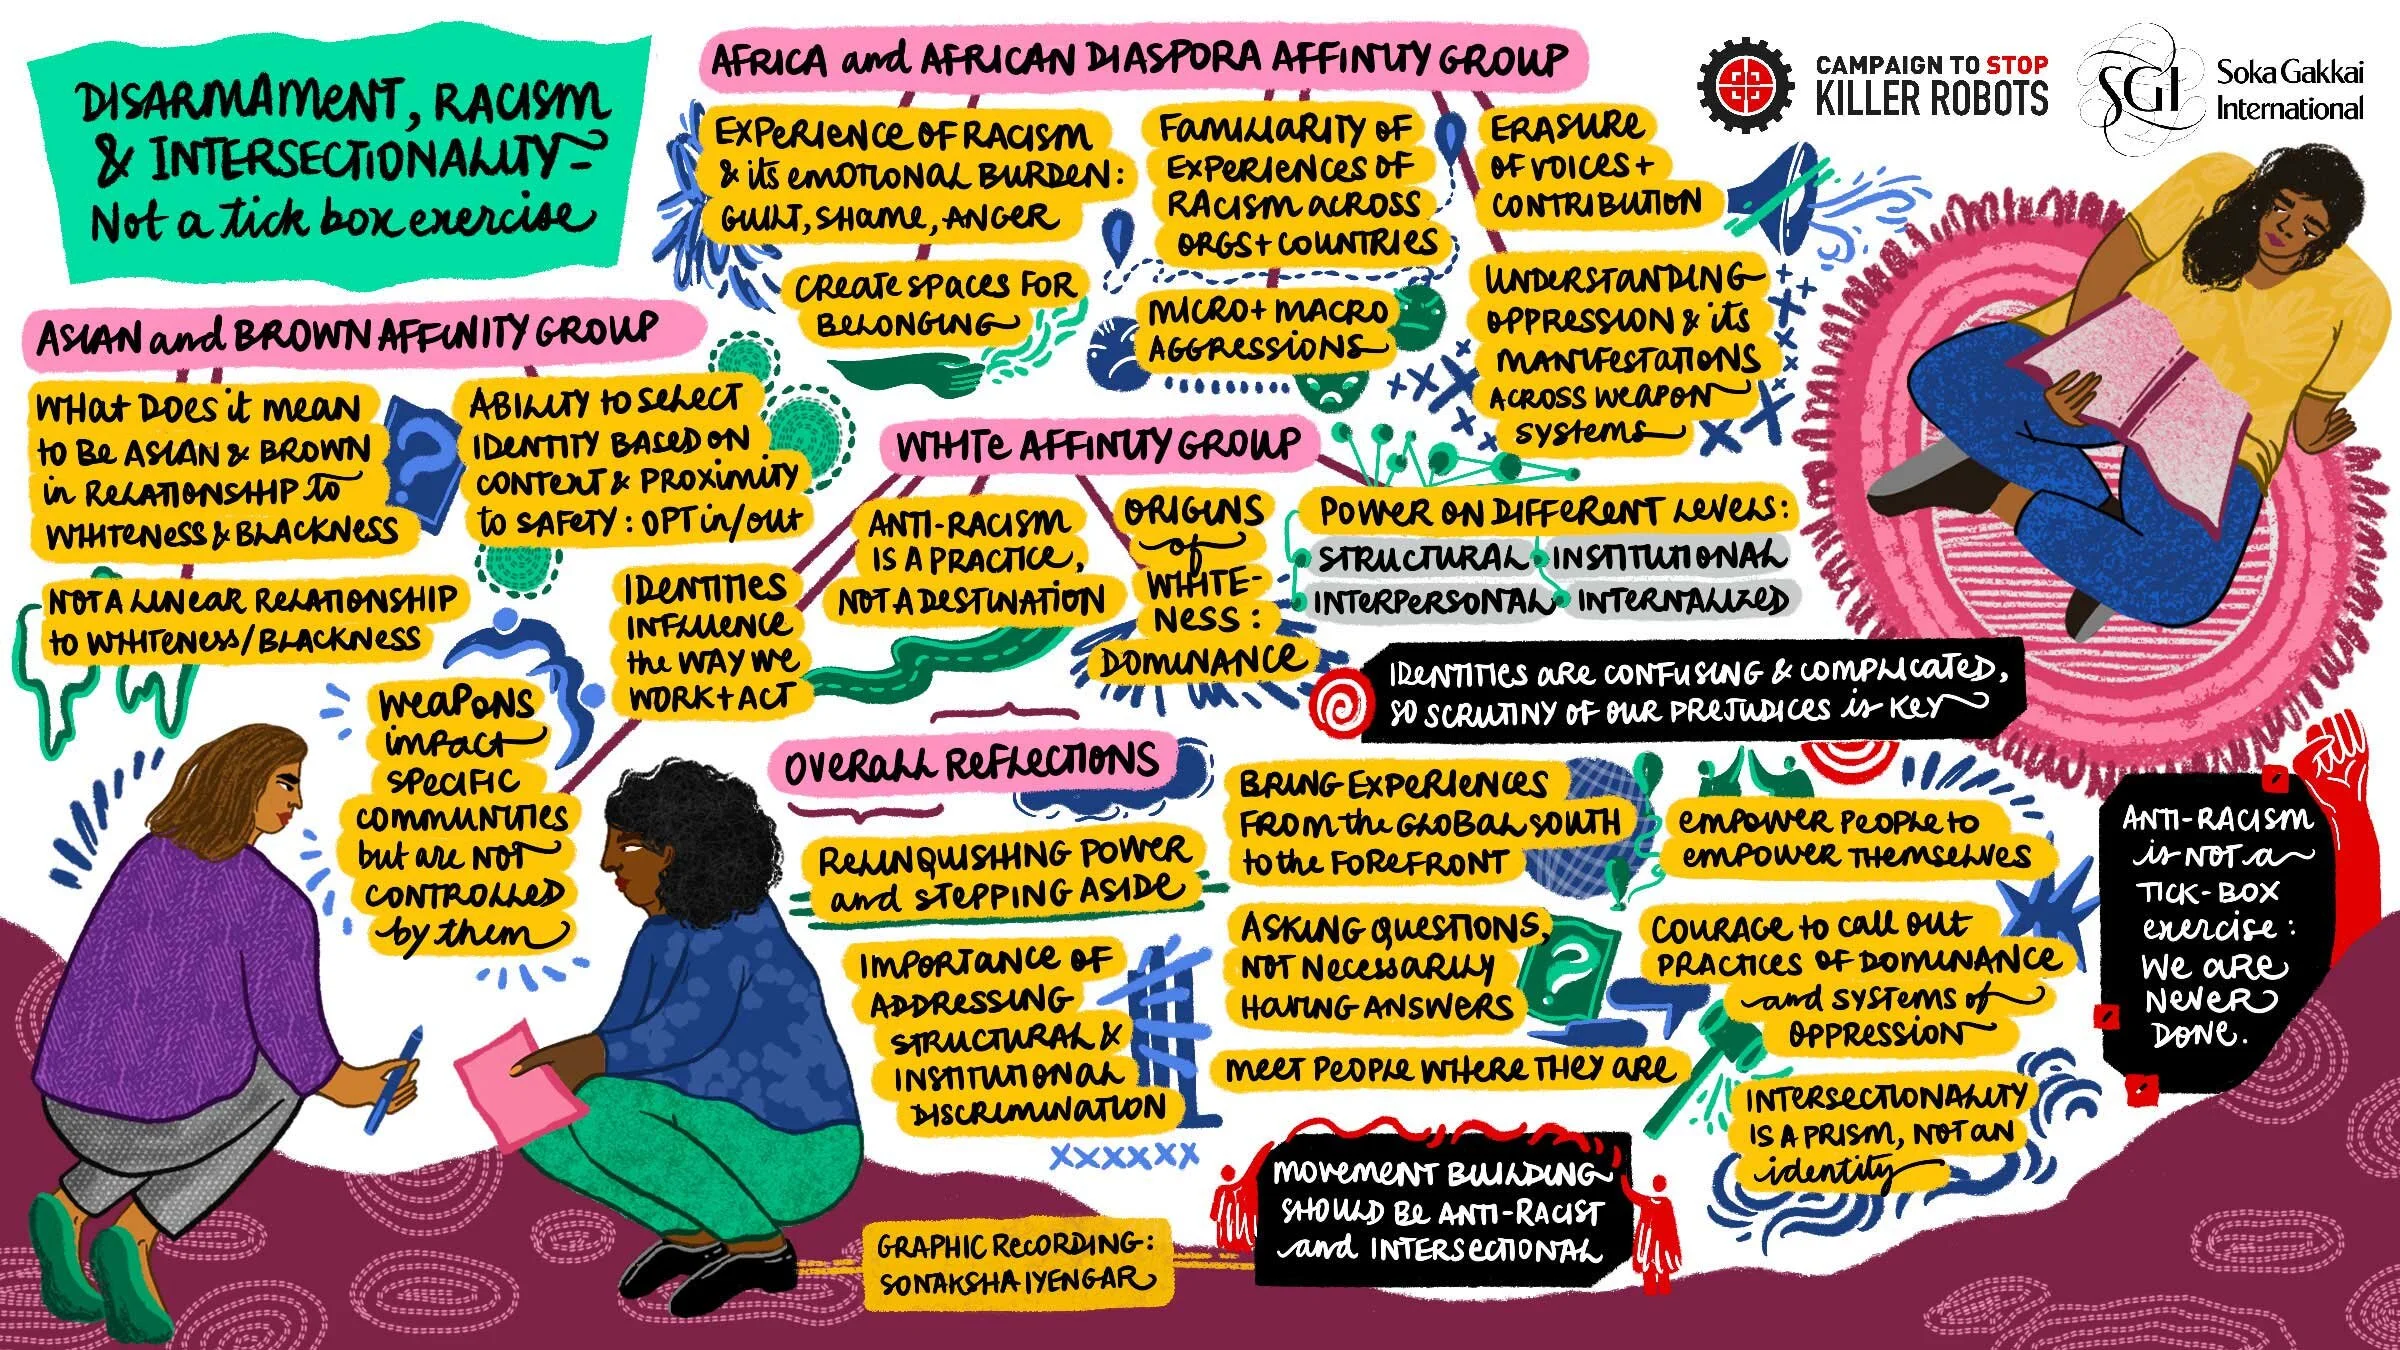 DISARMAMENT, RACISM
& INTERSECTIONALITY -
Not a tick box exercise
AFRICA and AFRICAN DIASPORA AFFINITY GROUP
EXPERIENCE OF RACISM
& its EMOTIONAL BURDEN:
GUILT, SHAME, ANGER
CREATE SPACES FOR
BELONGING
FAMILIARITY OF
EXPERIENCES OF
RACISM ACROSS
ORGS + COUNTRIES
MICRO + MACRO
AGGRESSIONS
ERASURE
OF VOICES +
CONTRIBUTION
UNDERSTANDING
OPPRESSION & its
MANIFESTATIONS
ACROSS WEAPON
SYSTEMS
CAMPAIGN TO STOP
KILLER ROBOTS
SGI
Soka Gakkai
International
ASIAN and BROWN AFFINITY GROUP
WHAT DOES it MEAN
to BE ASIAN & BROWN
in RELATIONSHIP TO
WHITENESS & BLACKNESS
?
NOT A LINEAR RELATIONSHIP
to WHITENESS/BLACKNESS
ABILITY to SELECT
IDENTITY BASED ON
CONTEXT & PROXIMITY
to SAFETY: OPT in/out
WEAPONS
impact
SPECIFIC
COMMUNITIES
but are NOT
CONTROLLED
by them
WHITE AFFINITY GROUP
IDENTITIES
INFLUENCE
the WAY WE
WORK + ACT
ANTI-RACISM
IS A PRACTICE,
NOT A DESTINATION
ORIGINS
of
WHITE-
NESS:
DOMINANCE
POWER ON DIFFERENT LEVELS:
STRUCTURAL INSTITUTIONAL
INTERPERSONAL INTERNALIZED
IDENTITIES ARE CONFUSING & COMPLICATED,
SO SCRUTINY OF OUR PREJUDICES is KEY
OVERALL REFLECTIONS
RELINQUISHING POWER
and STEPPING ASIDE
IMPORTANCE OF
ADDRESSING
STRUCTURAL &
INSTITUTIONAL
DISCRIMINATION
BRING EXPERIENCES
FROM the GLOBAL SOUTH
to the FOREFRONT
ASKING QUESTIONS,
NOT NECESSARILY
HAVING ANSWERS
?
MEET PEOPLE WHERE THEY ARE
EMPOWER PEOPLE to
EMPOWER THEMSELVES
COURAGE to CALL OUT
PRACTICES OF DOMINANCE
and SYSTEMS of
OPPRESSION
INTERSECTIONALITY
IS A PRISM, NOT AN
identity
ANTI-RACISM
is NOT a
TICK-BOX
exercise:
WE ARE
NEVER
DONE.
MOVEMENT BUILDING
SHOULD BE ANTI-RACIST
and INTERSECTIONAL
GRAPHIC RECORDING:
SONAKSHA IYENGAR